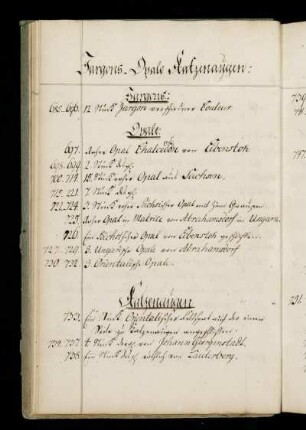 Jargons. Opale Katzenaugen:
Jargons:
685-696. 12 Stück Jargon verschiedner Couleur
Opale:
697. roher Opal Chalcedon von Eibenstok
698. 699. 2. Stück dergl.
700. 714. 15. Stück roher Opal aus Sachsen.
715. 721. 7. Stück dergl.
722. 724. 3. Stück roher Sächsischer Opal mit
725. roher Opal in Matrice von Abrahamsdorf in Ungarn.
726. ein Sächsischer Opal von Eibenstok geschliffen.
727.-729. 3. Ungarische Opale von Abrahamsdorf
730. 732. 3. Orientalische Opale.
Katzenaugen
733. Ein Stück Orientalischer Feldspat auf der einen
Seite zu Katzenaugen angeschliffen.
734. 737. 4. Stück dergl. von Johanngeorgenstadt.
738. Ein Stück dergl. röthlich von Lauterberg.